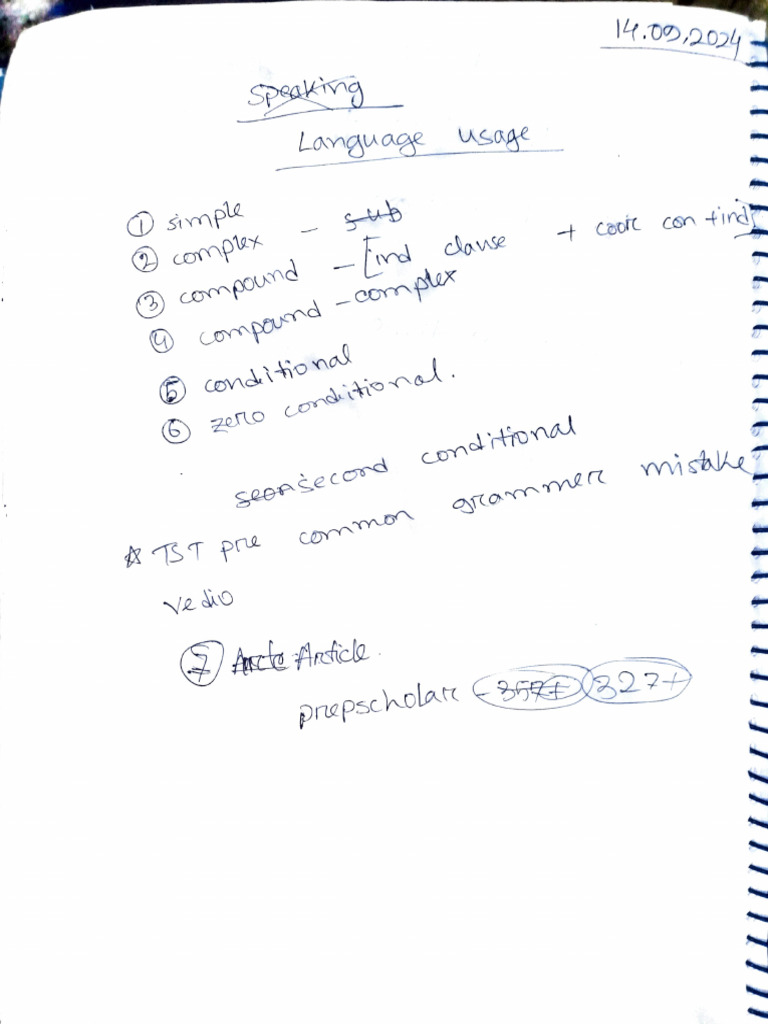 14.09.2024
Speaking
Language usage
① simple
② complex - sub
③ compound - [ind clause + coor con + ind]
④ compound - complex
⑤ conditional
⑥ zero conditional.
second conditional
☆ TST pre common grammer mistake
vedio
⑦ Article.
prepscholar 327+